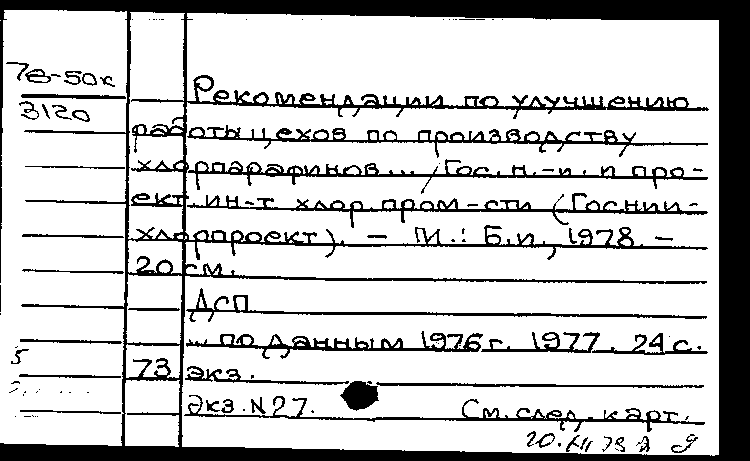 78-50к
3120
Рекомендации по улучшению
работы цехов по производству
хлорпарафинов... / Гос. н.-и. и про-
ект. ин-т хлор. пром-сти (Госнии-
хлорпроект). - М.: Б.и., 1978. -
20 см.
ДСП
... по данным 1976 г. 1977. 24 с.
5
73 экз.
Экз. N 27. См. след. карт.